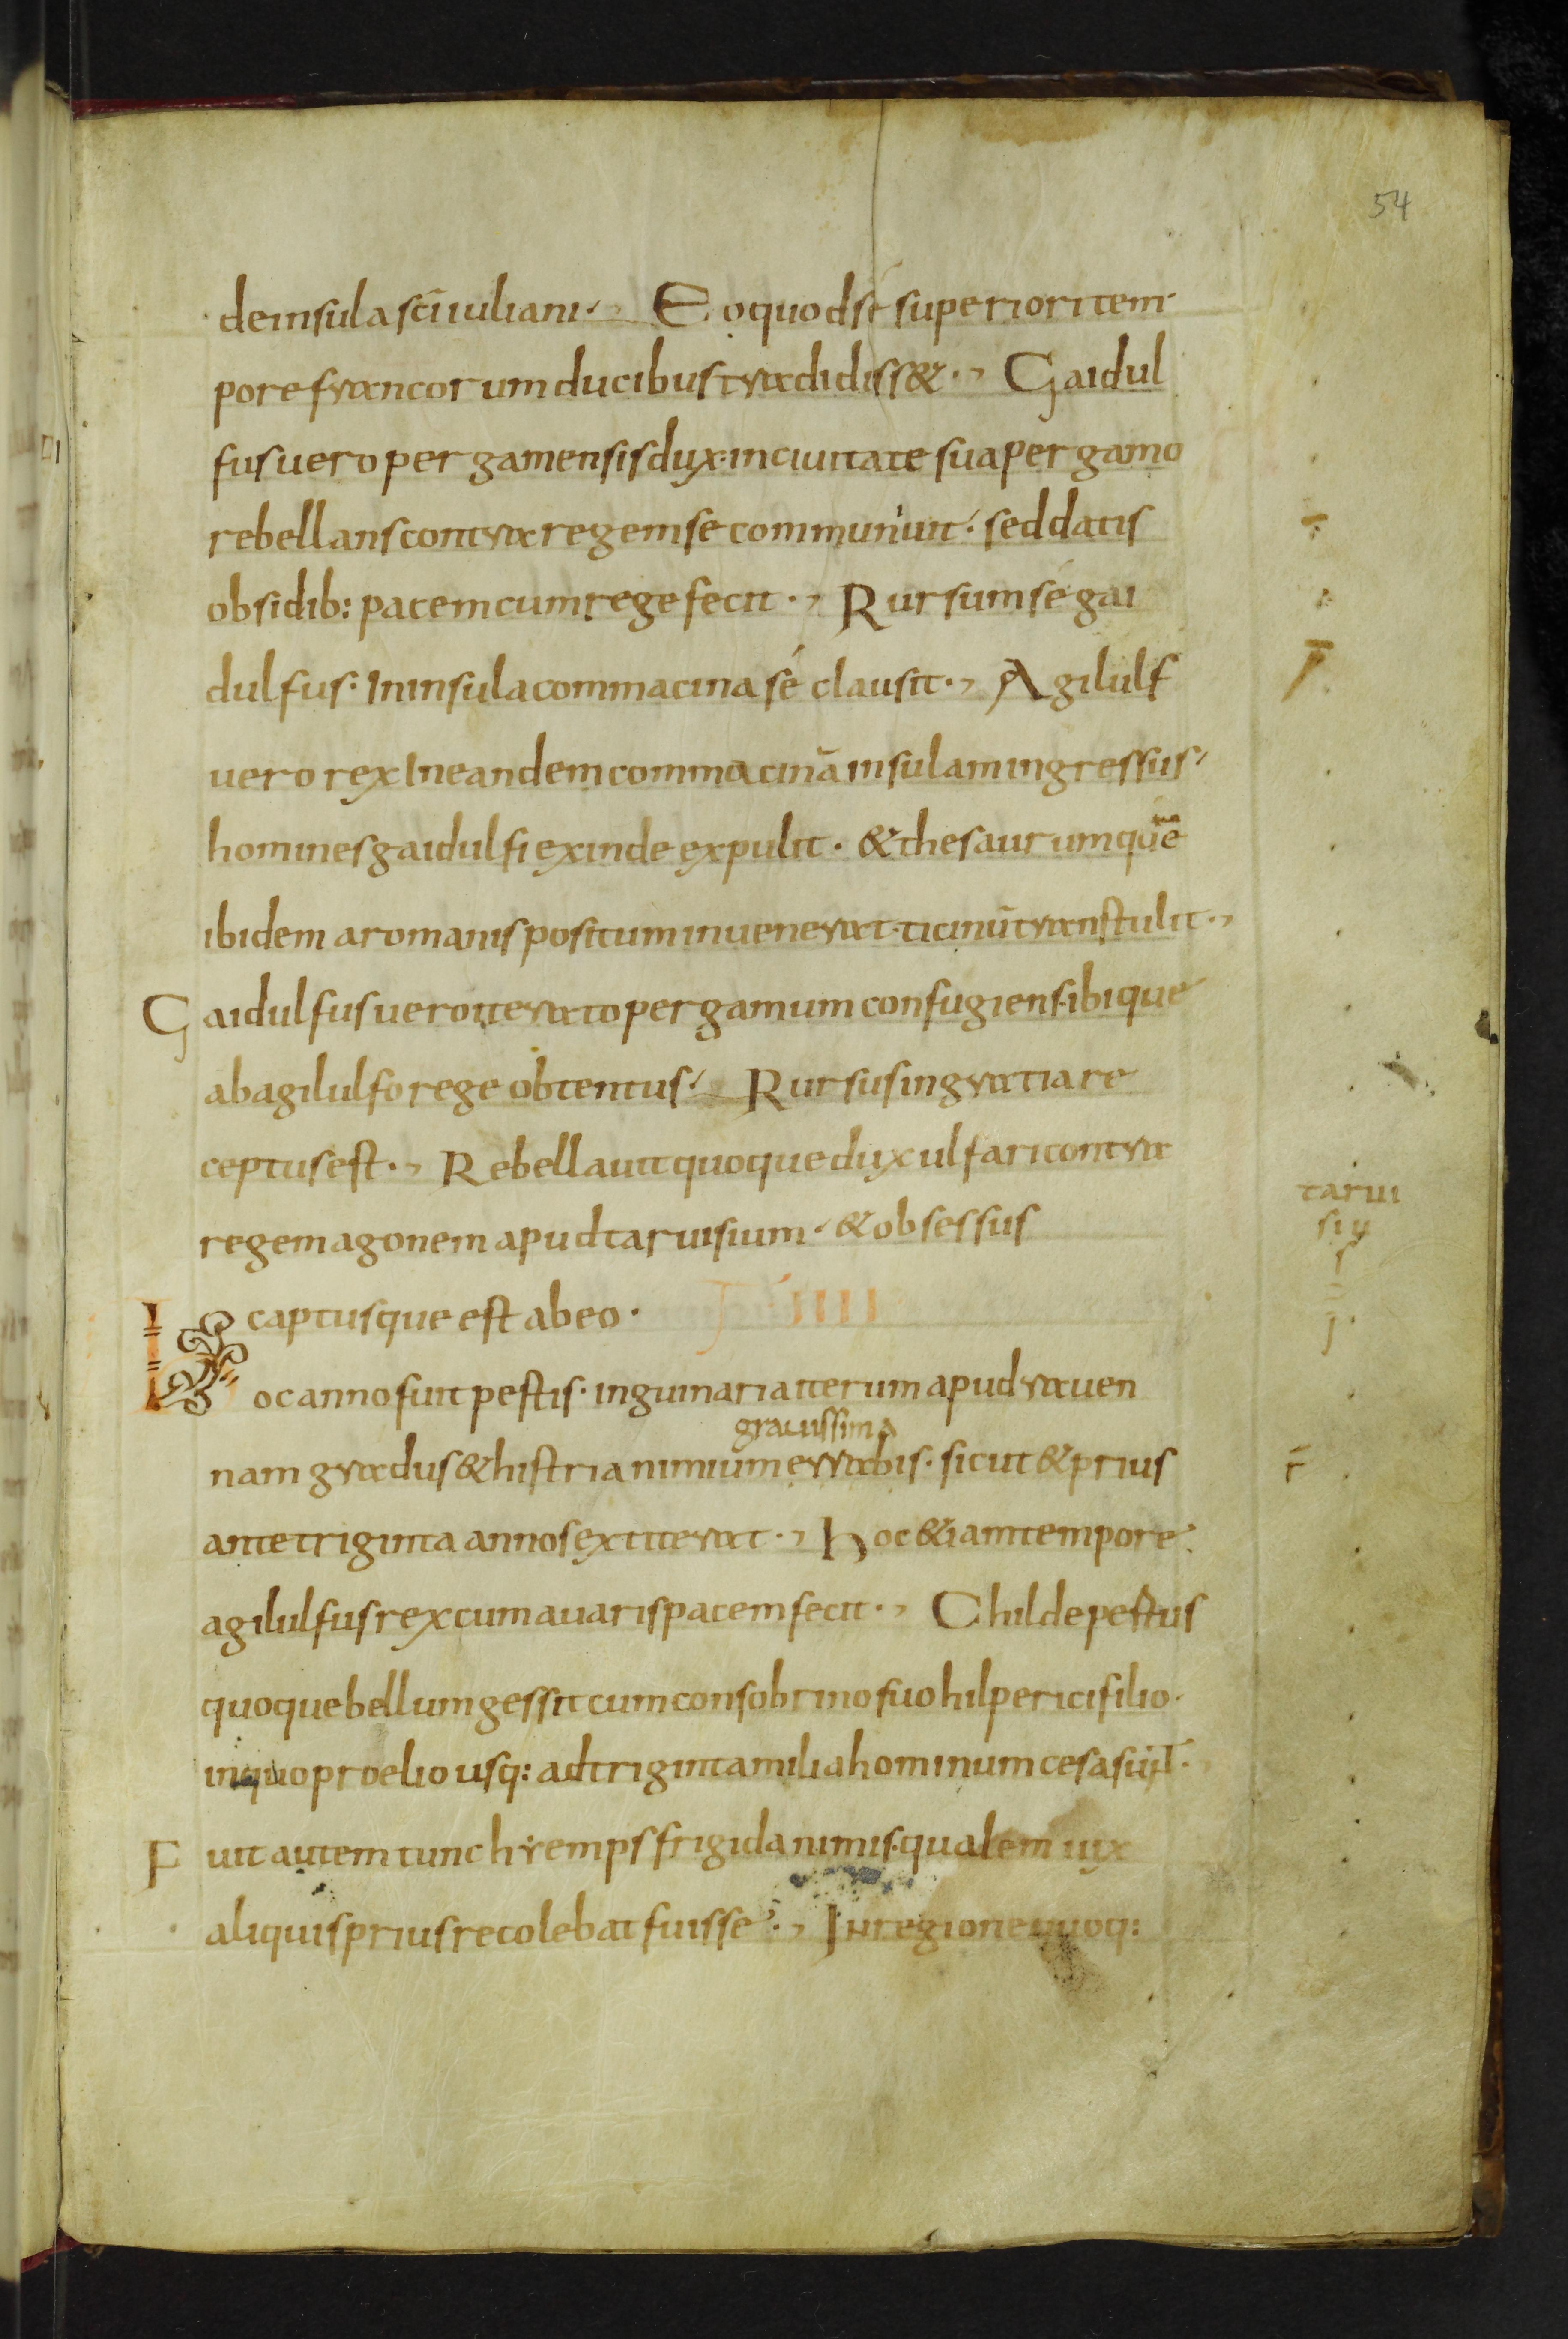 54
de insula sci iuliani. Eo quod sé superiori tem
pore francorum ducibus tradidiss&. Gaidul
fus uero pergamensis dux. in ciuitate sua pergamo
rebellans contra regem se communiuit. sed datis
obsidib: pacem cum rege fecit. Rursum sé gai
dulfus. In insula commacina sé clausit. Agilulf
uero rex In eandem commacinā insulam ingressus.
homines gaidulfi exinde expulit. & thesaurum quē
ibidem a romanis positum inuenerat. ticinū transtulit.
Gaidulfus uero iterato pergamum confugiens. ibique
ab agilulfo rege obtentus. Rursus in gratia re
ceptus est. Rebellauit quoque dux ulfari contra
regem agonem apud taruisium. & obsessus
tarui
siu
captusque est ab eo. IIII
Hoc anno fuit pestis. inguinaria iterum apud rauen
grauissima
nam gradus & histria nimium errabis. sicut & prius
ante triginta annos extiterat. Hoc &iam tempore
agilulfus rex cum auaris pacem fecit. Childepestus
quoque bellum gessit cum consobrino suo hilperici filio.
in quo proelio usq: ad triginta milia hominum cesa sunt.
Fuit autem tunc hyemps frigida nimis. qualem uix
aliquis prius recolebat fuisse. In regione quoq: